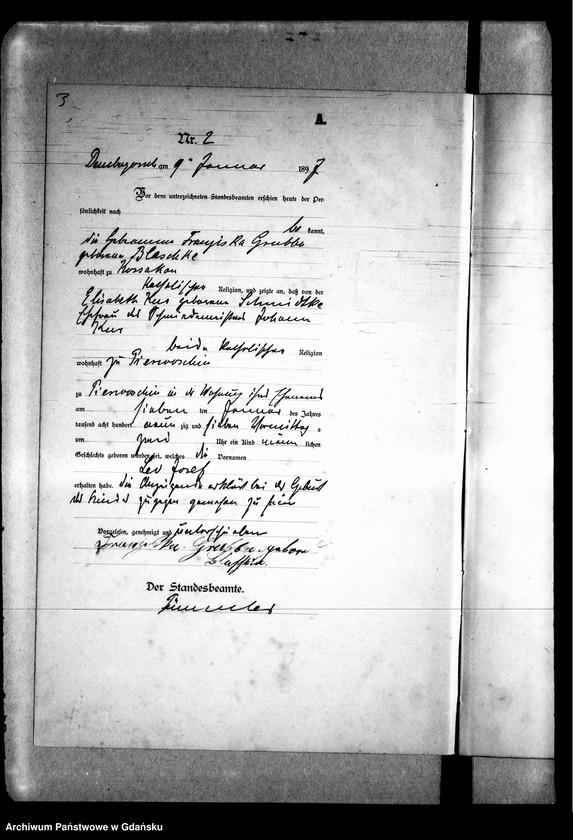 3
A.
Nr. 2
Dembogorsch am 9ten Januar 1897
Vor dem unterzeichneten Standesbeamten erschien heute der Per-
sönlichkeit nach
be kannt,
die Hebamme Franziska Grubba
geborene Blaschke
wohnhaft zu Kossakau
katholischer Religion, und zeigte an, daß von der
Elisabeth Kus geborene Schmidtke
Ehefrau des Schmiedemeisters Johann
Kus
beide katholischer Religion
wohnhaft zu Pierwoschin
zu Pierwoschin in der Wohnung ihres Ehemannes
am sieben ten Januar des Jahres
tausend acht hundert neun zig und sieben Vormittags
um Uhr ein Kind männ lichen
Geschlechts geboren worden sei, welches die Vornamen
Leo Josef
erhalten habe. Die Anzeigende erklärt bei der Geburt
des Kindes zugegen gewesen zu sein
Vorgelesen, genehmigt und unterschrieben
Franziska Grubba geborene
Blaschke
Der Standesbeamte.